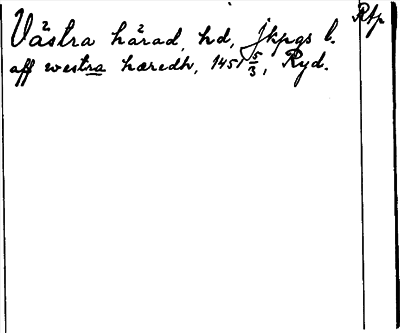 Västra härad, hd, Jkpgs l. Rtp
aff westra hæredh, 1451 5/3, Ryd.